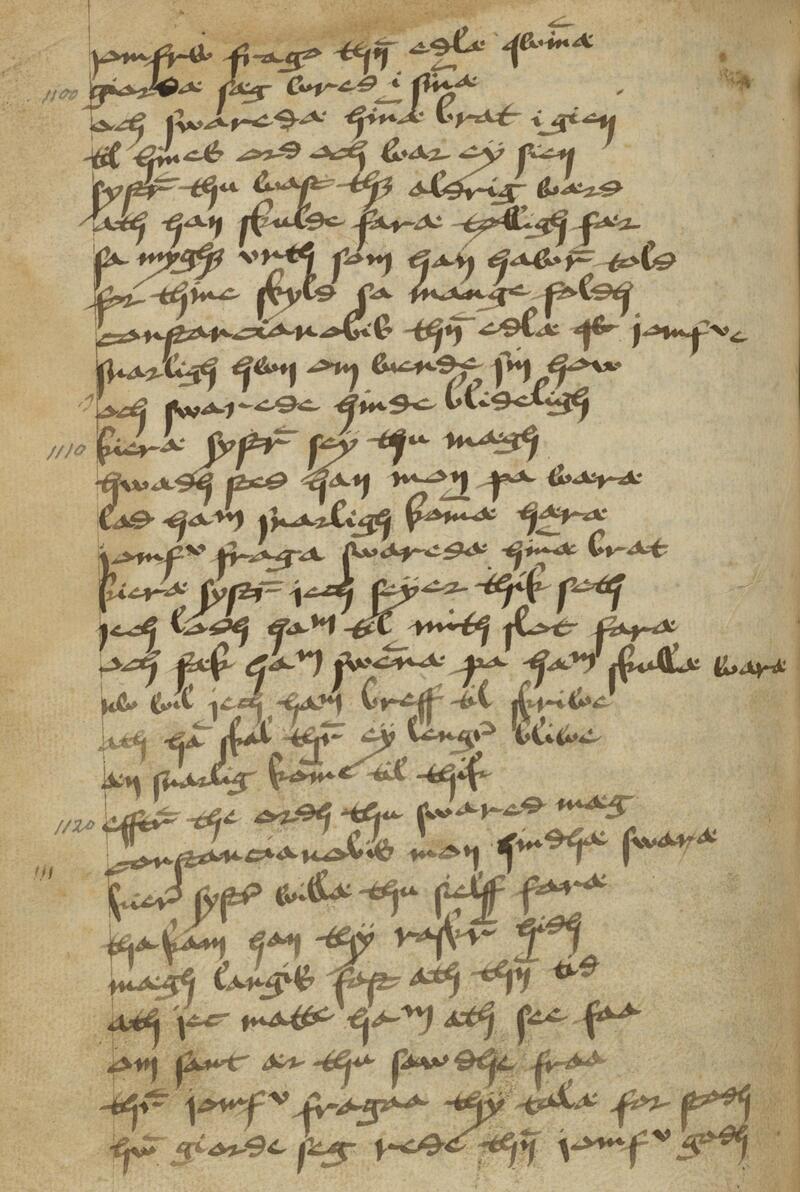 jomfrw frago thn̄ edlæ qwin̄æ
1100 giordæ sæg wred i sin̄æ
och swaredæ hin̄æ brat i gien
til hines ord och war ey sien
systr̄ thu wast thz aldrig wærd
ath han skulde faræ tølligh fær
sa myghz vrth som han hawr̄ told
for thine skyld sa mange foldh
constancianobis thn̄ edlæ qw jomfve
snarligh hwn om wende sin how
och swarede hinde blideligh
1110 kieræ systr̄ sey thu mægh
hwadh sted han mon pa wæræ
lad ham snarligh kom̄æ hæræ
jomfv fraga swaredæ hin̄æ brat
kieræ systr̄ jech seyer thik seth
jech lodh ham til mith slot faræ
och fæk ham swen̄æ pa ham skullæ waræ
nw wil jech ham breff til skriwe
ath hā skal thr̄ ey lengr̄ bliwe
æn snarlig kom̄e til thik
1120 efftr̄ the ordh thu swared mæg
constancianobis mon hindhæ swaræ
kier̄ systr̄ willæ thu sielff faræ
tha kam han thy raskr̄ hidh
mægh langis fast ath thn̄ tid
ath jec matte ham ath see faa
om sant ær thu saw dhe fraa
thr̄ jomfv fragaa thy talæ for stodh
hw̄ giorde seg rede thn̄ jomfv godh